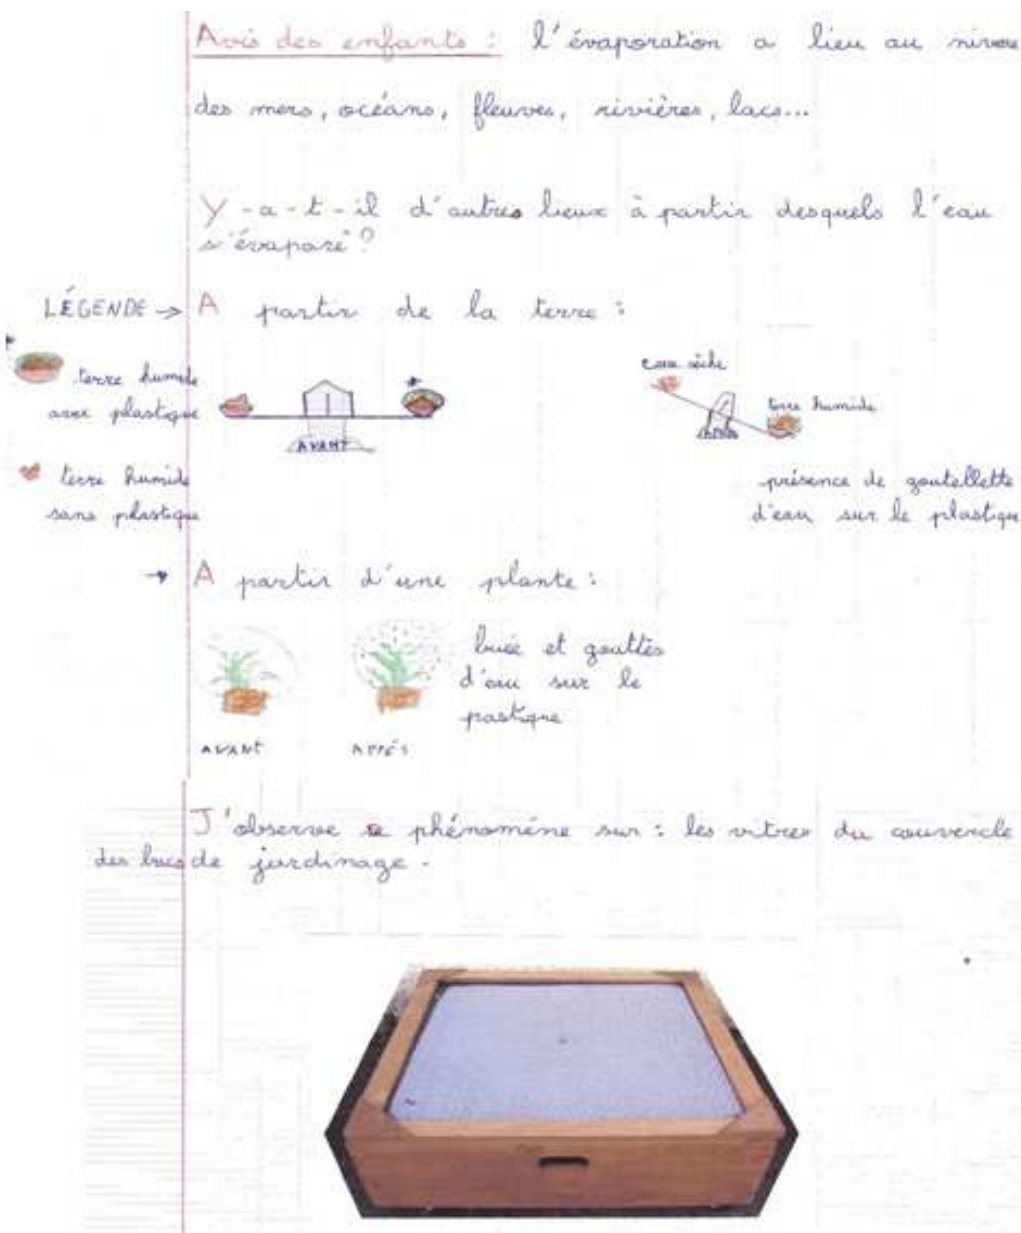 Avis des enfants : l'évaporation a lieu au niveau
des mers, océans, fleuves, rivières, lacs...
Y-a-t-il d'autres lieux à partir desquels l'eau
s'évapore?
LÉGENDE → A partir de la terre :
terre humide
avec plastique
terre humide
sans plastique
AVANT
sèche
terre humide
présence de goutellette
d'eau sur le plastique
→ A partir d'une plante :
buée et gouttes
d'eau sur le
pastique
AVANT
APRÉS
J'observe ce phénomène sur : les vitres du couvercle
des bacs de jardinage.